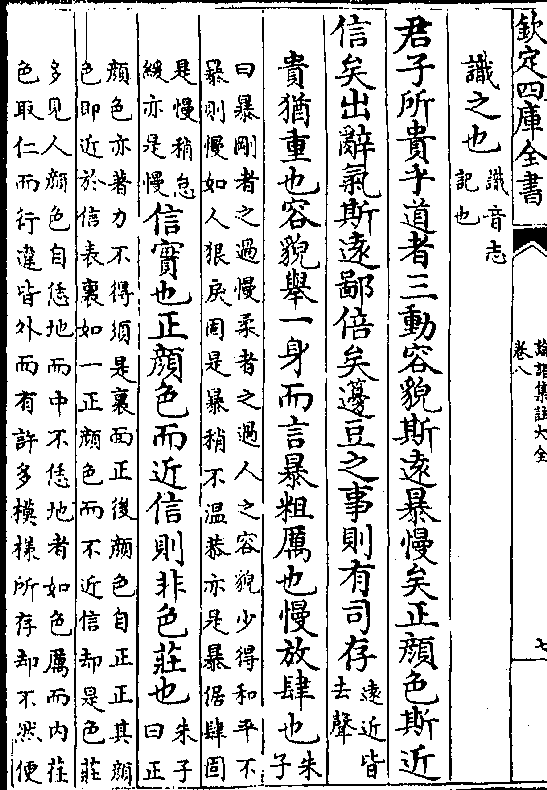 欽定四庫全書
論語集註大全
卷八
七
識之也識音志
記也
君子所貴乎道者三動容貌斯遠暴慢矣正顔色斯近
信矣出辭氣斯遠鄙倍矣籩豆之事則有司存遠近皆
去聲
貴猶重也容貌舉一身而言暴粗厲也慢放肆也朱
子
曰暴剛者之過慢柔者之過人之容貌少得和平不
暴則慢如人狠戾固是暴稍不溫恭亦是暴倨肆固
是慢稍怠
緩亦是慢
信實也正顔色而近信則非色莊也朱子
曰正
顔色亦著力不得須是裏面正後顔色自正正其顔
色即近於信表裏如一正顔色而不近信却是色莊
多見人顔色自恁地而中不恁地者如色厲而内荏
色取仁而行違皆外面有許多模様所存却不然便